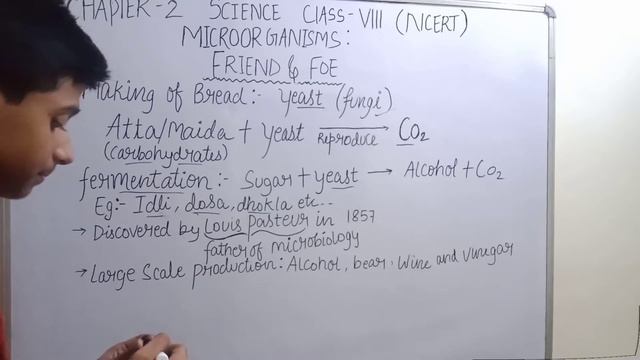 CHAPTER-2 SCIENCE CLASS-VIII (NCERT)
MICROORGANISMS:
FRIEND & FOE
Making of Bread:- yeast (fungi)
Atta/Maida + yeast → CO2
Reproduce
(carbohydrates)
fermentation:- Sugar + yeast → Alcohol + CO2
Eg:- Idli, dosa, dhokla etc...
→ Discovered by Louis Pasteur in 1857
father of microbiology
→ Large Scale Production: Alcohol, bear, Wine and vinegar